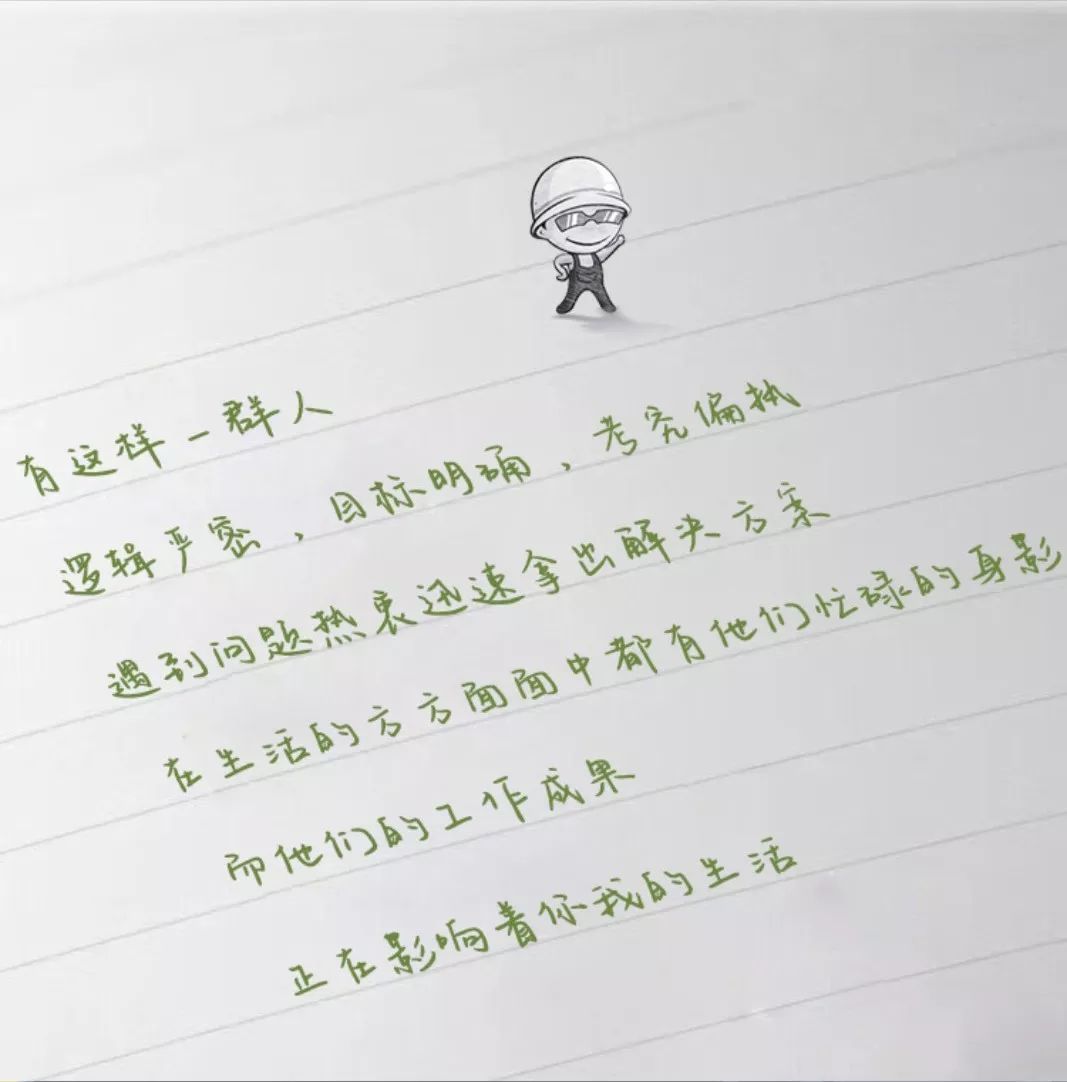 有这样一群人
逻辑严密，目标明确，考究偏执
遇到问题热衷迅速拿出解决方案
在生活的方方面面中都有他们忙碌的身影
而他们的工作成果
正在影响着你我的生活